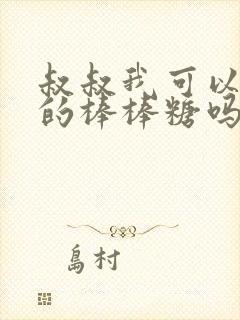 叔叔我可以
的棒棒糖吗
島村